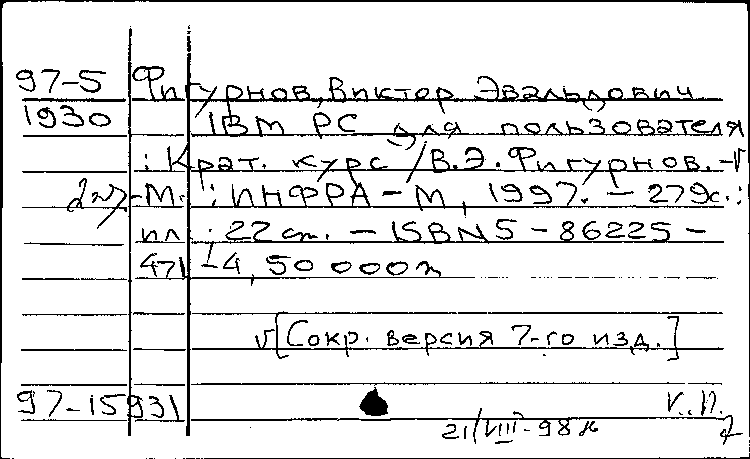 97-5 Фигурнов, Виктор Эвальдович
1930 IBM PC для пользователя
: Крат. курс / В.Э. Фигурнов. - √
- М. : ИНФРА - М, 1997. - 279с. :
ил ; 22 cm. - ISBN 5 - 86225 -
471 - 4, 50 000
√ [Сокр. версия 7-го изд.]
97-15931
21/VIII-98